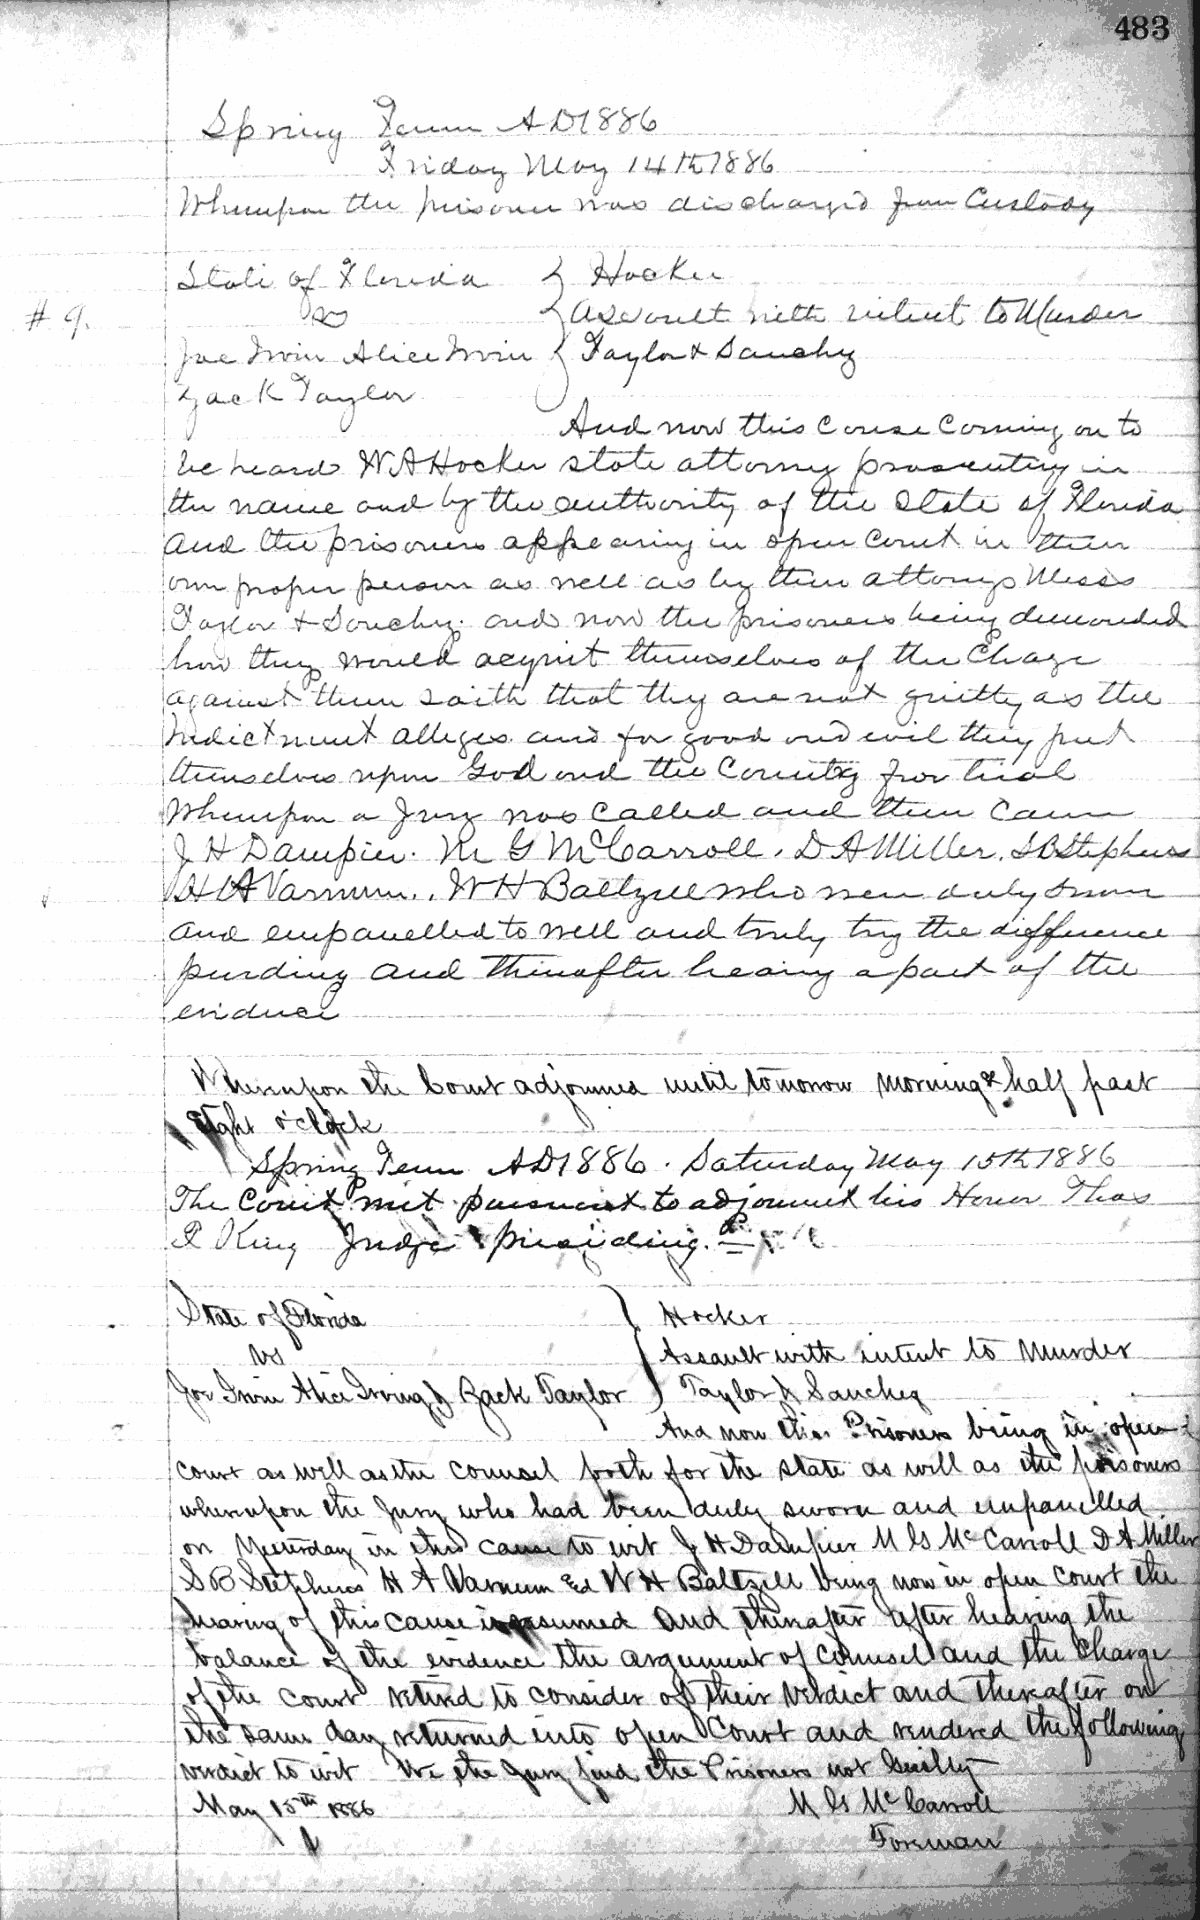 483
Spring Term AD 1886
Friday May 14th 1886
Whereupon the prisoner was discharged from Custody
State of Florida } Hocker
# 9. vs } Assault with intent to Murder
Joe Irvin Alice Irvin } Taylor & Sanchy
Zack Taylor
And now this Cause Coming on to
be heard W A Hocker state attorney prosecuting in
the name and by the authority of the State of Florida
and the prisoners appearing in open Court in their
own proper person as well as by their attorneys Mess
Taylor & Sanchy. and now the prisoners being demanded
how they would acquit themselves of the Charge
against them saith that they are not guilty as the
Indictment alleges and for good and evil they put
themselves upon God and the Country for trial
Whereupon a Jury was Called and there Came
J H Dampier. M G McCarroll. D A Miller. S B Stephens
H A Varnum.. W H Baltzell who were duly sworn
and empanelled to well and truly try the difference
pending and thereafter hearing a part of the
evidence
Whereupon the Court adjourned until tomorrow morning at half past
Eight o'clock
Spring Term AD 1886. Saturday May 15th 1886
The Court met pursuant to adjournment his Honor Thos
P King Judge presiding.
State of Florida } Hocker
vs } Assault with intent to Murder
Joe Irvin Alice Irving & Zack Taylor } Taylor & Sanchez
And now this Prisoners being in open
court as well as the counsel both for the state as well as the prisoners
whereupon the Jury who had been duly sworn and empanelled
on Yesterday in this cause to wit J H Dampier M G McCarroll D A Miller
S B Stephens H A Varnum and W H Baltzell being now in open court the
hearing of this cause is resumed and thereafter after hearing the
balance of the evidence the argument of Counsel and the Charge
of the court retired to consider of their verdict and thereafter on
the same day returned into open Court and rendered the following
verdict to wit We the Jury find the Prisoners not Guilty
May 15th 1886 M G McCarroll
Foreman